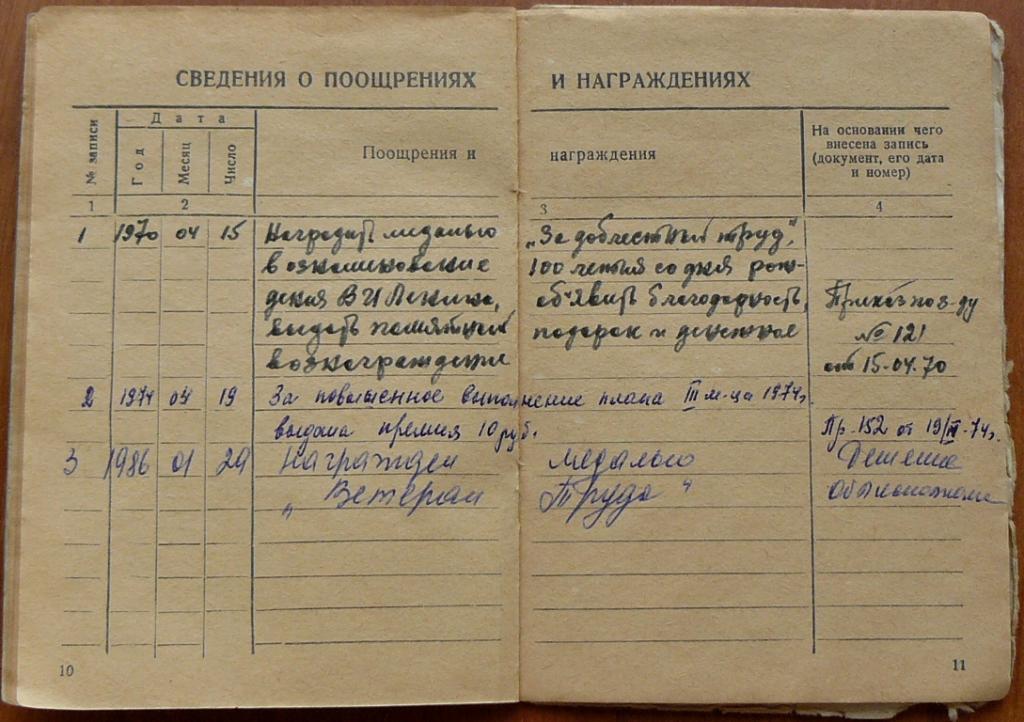 СВЕДЕНИЯ О ПООЩРЕНИЯХ И НАГРАЖДЕНИЯХ
№ записи
Дата
Год Месяц Число
Поощрения и награждения
На основании чего
внесена запись
(документ, его дата
и номер)
1 2 3 4
1 1970 04 15 Наградить медалью „За доблестный труд",
в ознаменование 100 летия со дня рож-
дения В И Ленина, объявить благодарность, Приказ по з-ду
выдать памятный подарок и денежное № 121
вознаграждение от 15-04.70
2 1974 04 19 За повышенное выполнение плана III м-ца 1974г.
выдана премия 10 руб. Пр. 152 от 19/IV-74г.
3 1986 01 29 Награжден медалью Решение
„Ветеран Труда"
10 11